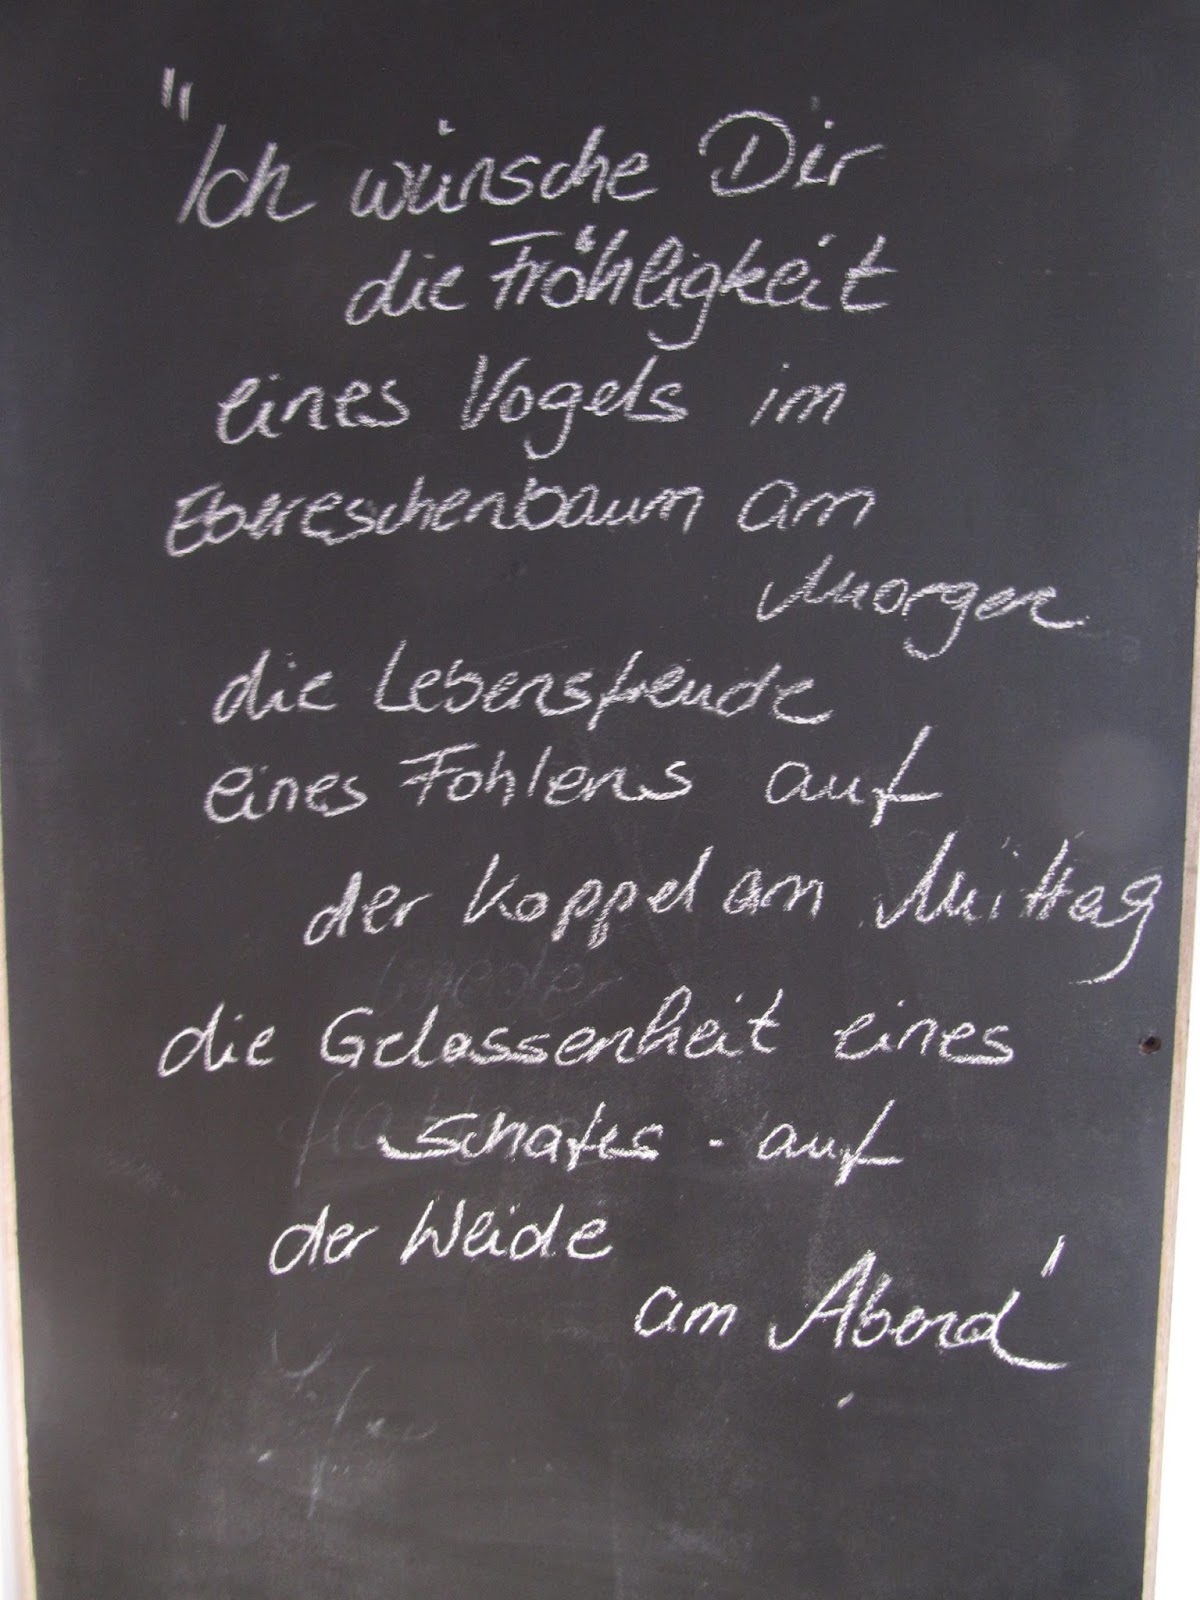 "Ich wünsche Dir
die Fröhligkeit
eines Vogels im
Ebereschenbaum am
Morgen
die Lebensfreude
eines Fohlens auf
der Koppel am Mittag
die Gelassenheit eines
Schafes - auf
der Weide
am Abend'